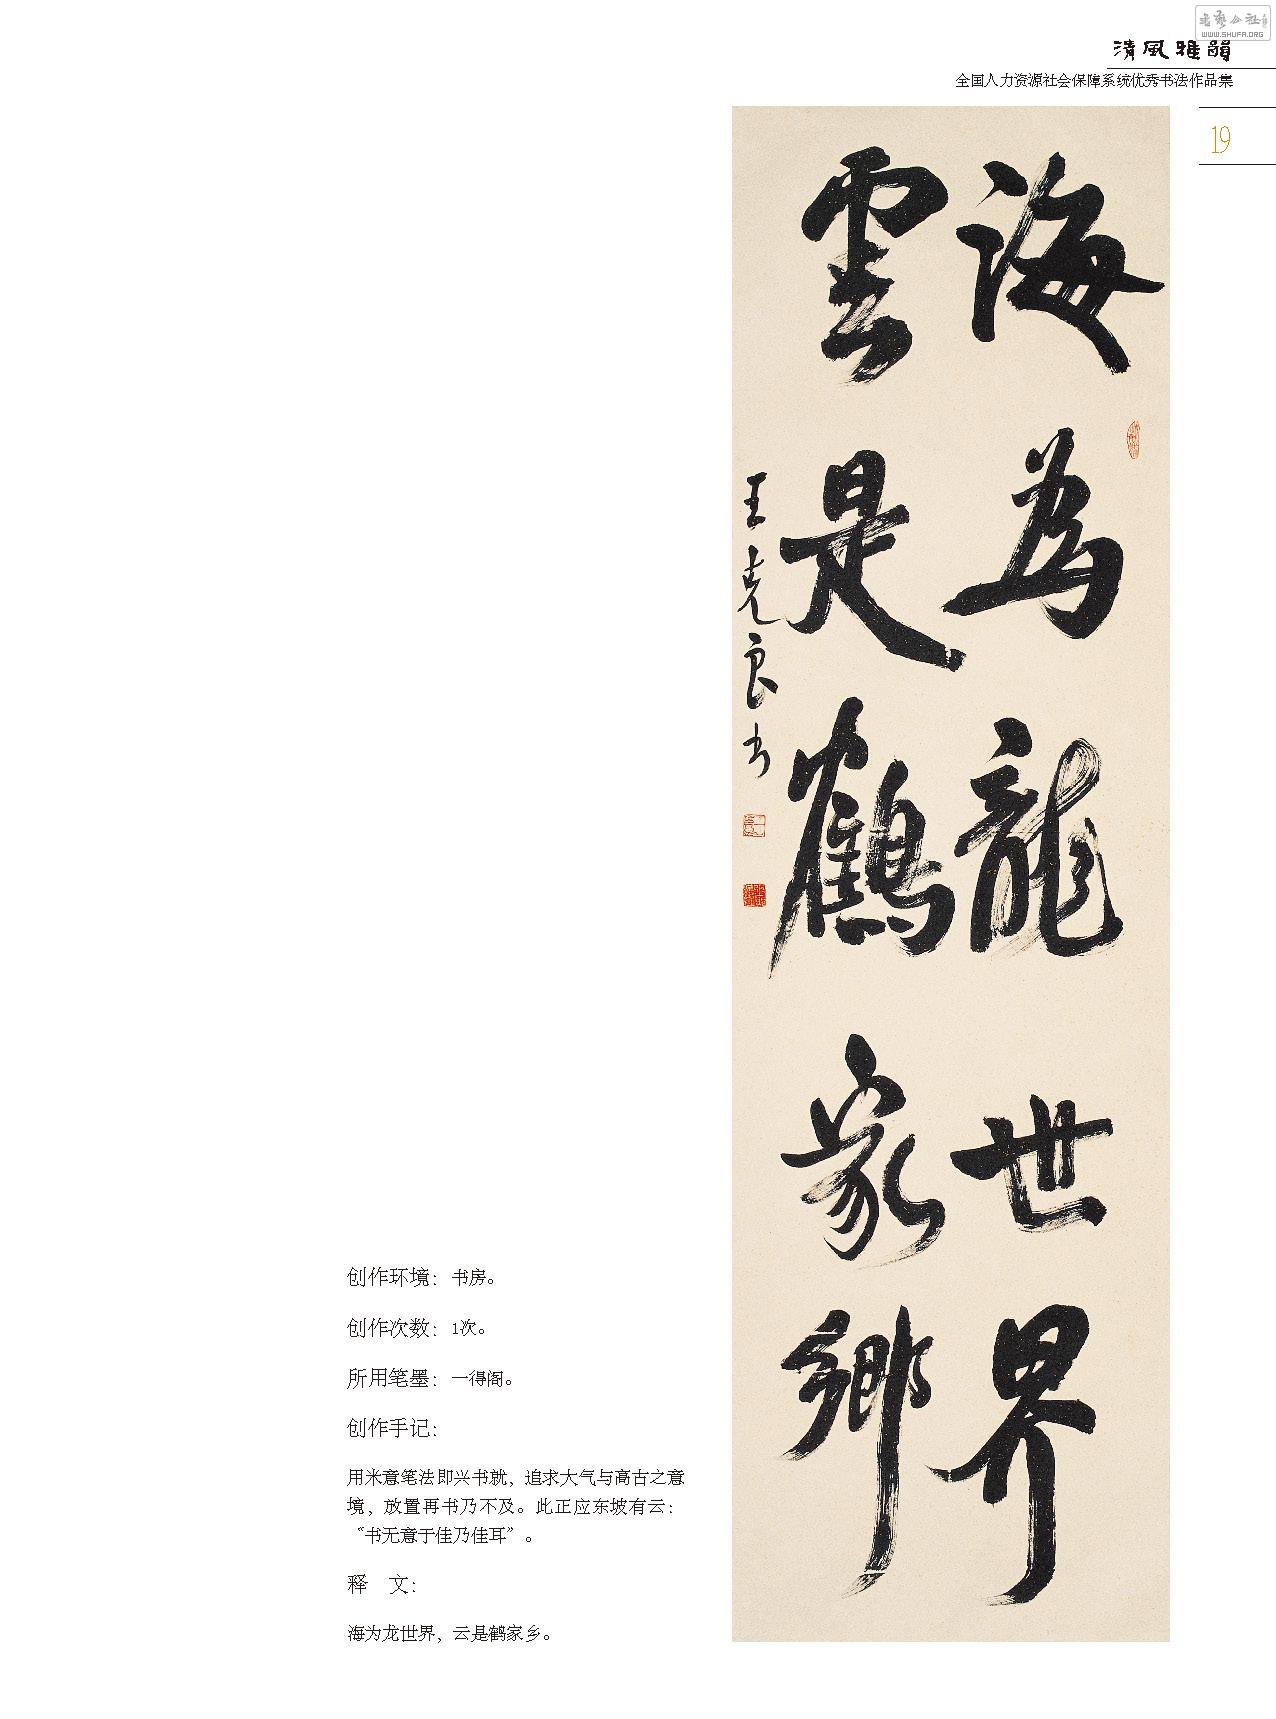 WWW.SHUFA.ORG
清風雅韻
全国人力资源社会保障系统优秀书法作品集
19
海為龍世界
雲是鶴家鄉
王克良书
创作环境：书房。
创作次数：1次。
所用笔墨：一得阁。
创作手记：
用米意笔法即兴书就，追求大气与高古之意
境，放置再书乃不及。此正应东坡有云：
“书无意于佳乃佳耳”。
释　文：
海为龙世界，云是鹤家乡。